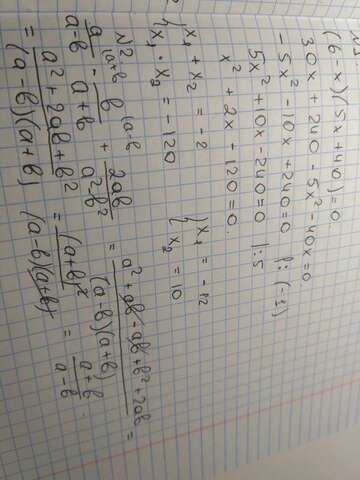 N1
(6-x)(5x+40)=0.
30x+240-5x²-40x=0
-5x²-10x+240=0 |:(-1)
5x²+10x-240=0 |:5
x²+2x-120=0.
{x₁+x₂=-2 {x₁=-12
{x₁·x₂=-120 {x₂=10
N2
a/(a-b) - b/(a+b) + 2ab/(a²-b²) = (a²+ab-ab+b²+2ab)/((a-b)(a+b)) =
= (a²+2ab+b²)/((a-b)(a+b)) = (a+b)²/((a-b)(a+b)) = (a+b)/(a-b).